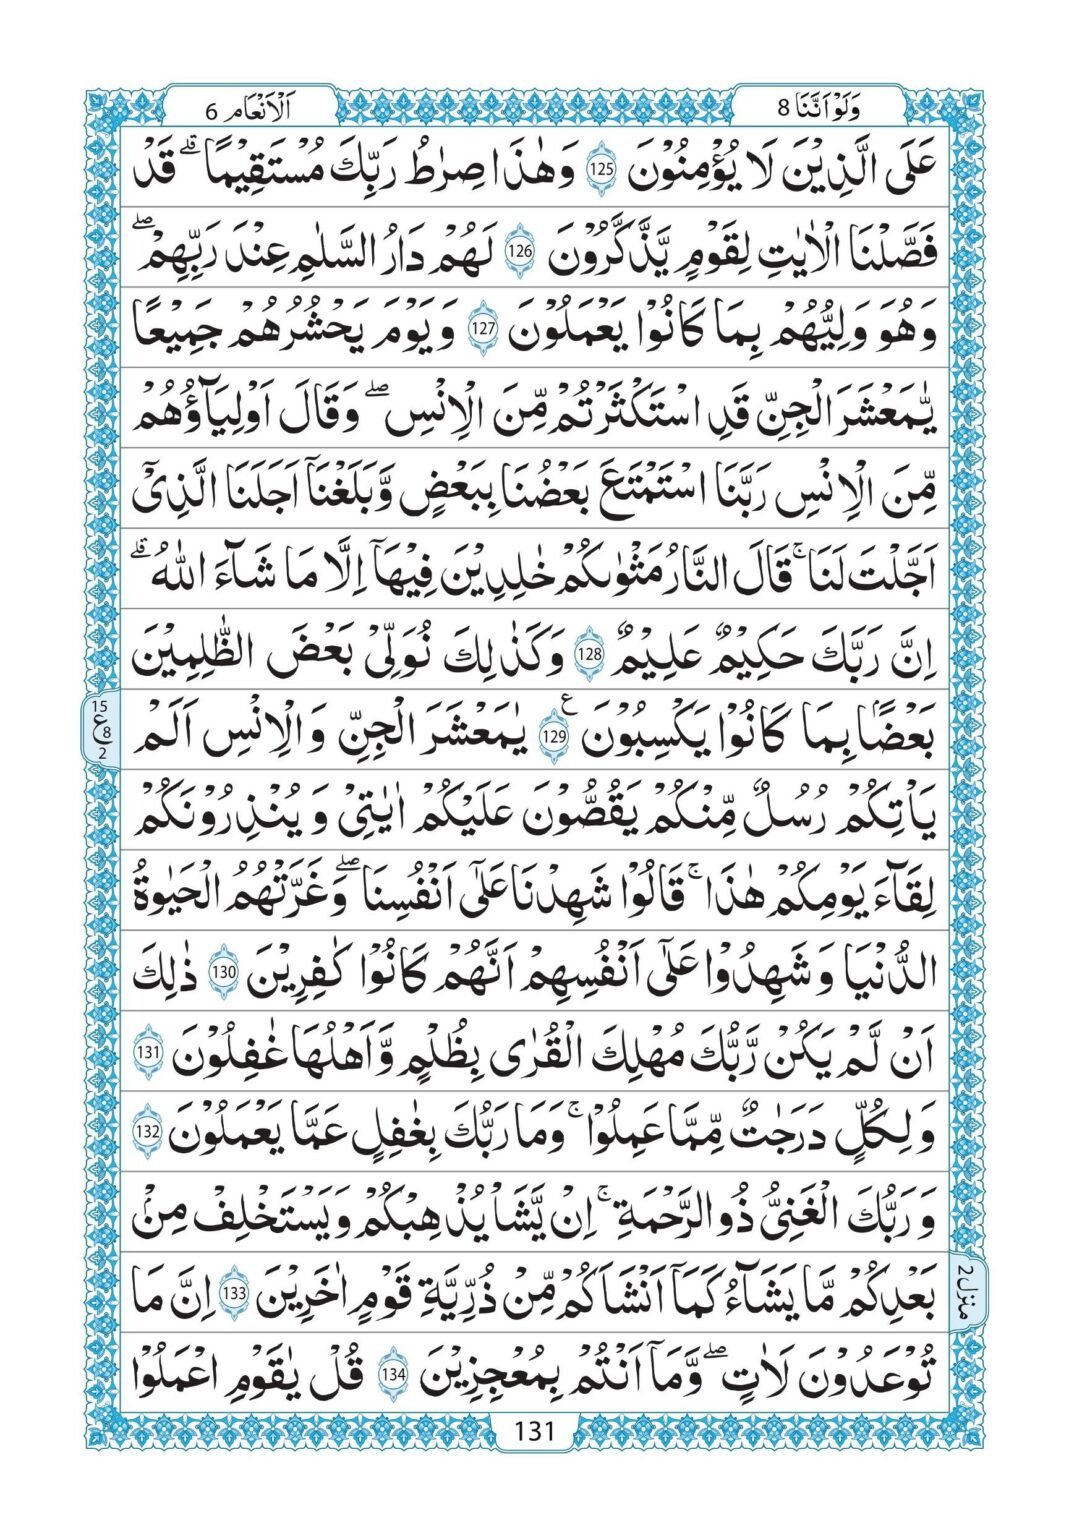 وَلَوْ اَنَّنَا 8
اَلْاَنْعَام 6
عَلَى الَّذِيْنَ لَا يُؤْمِنُوْنَ 125 وَهٰذَا صِرٰطُ رَبِّكَ مُسْتَقِيْمًا ۗ قَدْ
فَصَّلْنَا الْاٰيٰتِ لِقَوْمٍ يَّذَّكَّرُوْنَ 126 لَهُمْ دَارُ السَّلٰمِ عِنْدَ رَبِّهِمْ ۖ
وَهُوَ وَلِيُّهُمْ بِمَا كَانُوْا يَعْمَلُوْنَ 127 وَيَوْمَ يَحْشُرُهُمْ جَمِيْعًا
يٰمَعْشَرَ الْجِنِّ قَدِ اسْتَكْثَرْتُمْ مِّنَ الْاِنْسِ ۖ وَقَالَ اَوْلِيَآؤُهُمْ
مِّنَ الْاِنْسِ رَبَّنَا اسْتَمْتَعَ بَعْضُنَا بِبَعْضٍ وَّبَلَغْنَآ اَجَلَنَا الَّذِيْٓ
اَجَّلْتَ لَنَا ۚ قَالَ النَّارُ مَثْوٰىكُمْ خٰلِدِيْنَ فِيْهَآ اِلَّا مَا شَآءَ اللّٰهُ ۗ
اِنَّ رَبَّكَ حَكِيْمٌ عَلِيْمٌ 128 وَكَذٰلِكَ نُوَلِّيْ بَعْضَ الظّٰلِمِيْنَ
بَعْضًا بِمَا كَانُوْا يَكْسِبُوْنَ ع 129 يٰمَعْشَرَ الْجِنِّ وَالْاِنْسِ اَلَمْ
15 ع 8 2
يَاْتِكُمْ رُسُلٌ مِّنْكُمْ يَقُصُّوْنَ عَلَيْكُمْ اٰيٰتِيْ وَيُنْذِرُوْنَكُمْ
لِقَآءَ يَوْمِكُمْ هٰذَا ۚ قَالُوْا شَهِدْنَا عَلٰٓى اَنْفُسِنَا ۖ وَغَرَّتْهُمُ الْحَيٰوةُ
الدُّنْيَا وَشَهِدُوْا عَلٰٓى اَنْفُسِهِمْ اَنَّهُمْ كَانُوْا كٰفِرِيْنَ 130 ذٰلِكَ
اَنْ لَّمْ يَكُنْ رَّبُّكَ مُهْلِكَ الْقُرٰى بِظُلْمٍ وَّاَهْلُهَا غٰفِلُوْنَ 131
وَلِكُلٍّ دَرَجٰتٌ مِّمَّا عَمِلُوْا ۚ وَمَا رَبُّكَ بِغٰفِلٍ عَمَّا يَعْمَلُوْنَ 132
وَرَبُّكَ الْغَنِيُّ ذُو الرَّحْمَةِ ۚ اِنْ يَّشَاْ يُذْهِبْكُمْ وَيَسْتَخْلِفْ مِنْۢ
بَعْدِكُمْ مَّا يَشَآءُ كَمَآ اَنْشَاَكُمْ مِّنْ ذُرِّيَّةِ قَوْمٍ اٰخَرِيْنَ 133 اِنَّ مَا
منزل 2
تُوْعَدُوْنَ لَاٰتٍ ۖ وَّمَآ اَنْتُمْ بِمُعْجِزِيْنَ 134 قُلْ يٰقَوْمِ اعْمَلُوْا
131